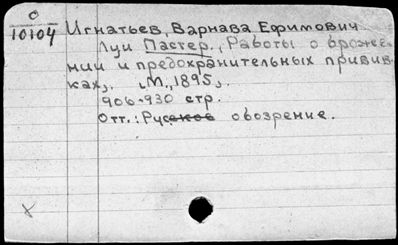 О
10104
Игнатьев, Варнава Ефимович
Луи Пастер., Работы о броже-
нии и предохранительных привив-
ках,. М., 1895,.
906-930 стр.
Отт.: Русское обозрение.